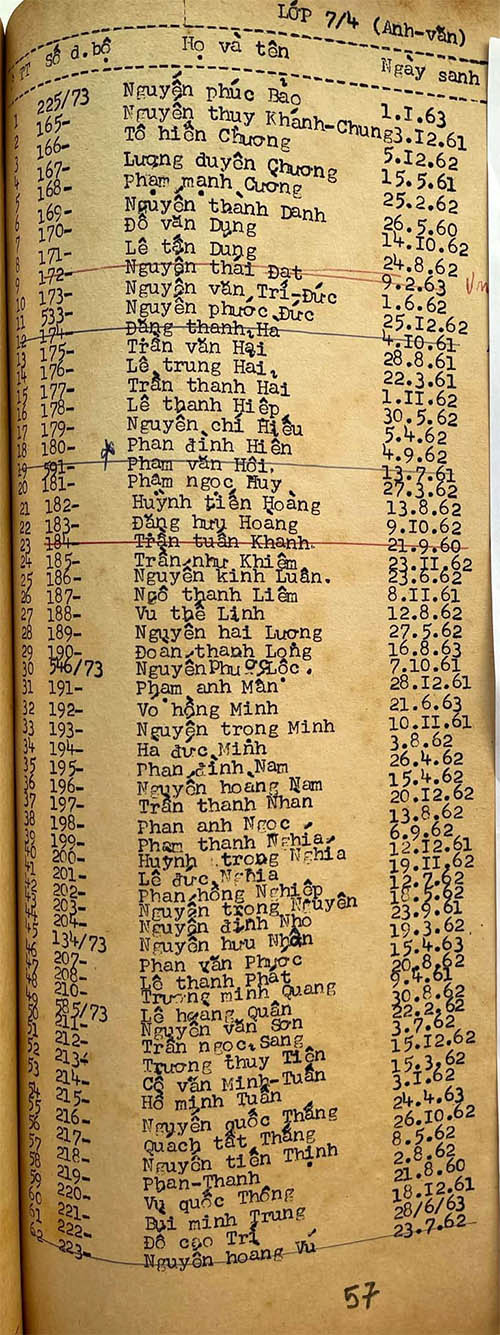 LỚP 7/4 (Anh-văn)
TT Số d.bộ Họ và tên Ngày sanh
1 225/73 Nguyễn phúc Bảo 1.I.63
2 165- Nguyễn thuy Khánh-Chung 3.I2.61
3 166- Tô hiến Chương 5.I2.62
4 167- Lương duyên Chương 15.5.61
5 168- Phạm mạnh Cương 25.2.62
6 169- Nguyễn thanh Danh 26.5.60
7 170- Đỗ văn Dụng 14.I0.62
8 171- Lê tấn Dung 24.8.62
9 172- Nguyễn thái Đạt 9.2.63
10 173- Nguyễn văn Trí-Đức 1.6.62
11 533- Nguyễn phước Đức 25.I2.62
12 174- Đặng thanh Hà 4.I0.61
13 175- Trần văn Hai 28.8.61
14 176- Lê trung Hai 22.3.61
15 177- Trần thanh Hai 1.II.62
16 178- Lê thanh Hiệp 30.5.62
17 179- Nguyễn chí Hiếu 5.4.62
18 180- Phan đình Hiên 4.9.62
19 591- Phạm văn Hồi. 13.7.61
20 181- Phạm ngọc Huy 27.3.62
21 182- Huỳnh tiến Hoàng 13.8.62
22 183- Đặng huu Hoang 9.I0.62
23 184- Trần tuấn Khanh 21.9.60
24 185- Trần như Khiêm 23.II.62
25 186- Nguyễn kinh Luân. 23.6.62
26 187- Ngô thanh Liêm 8.II.61
27 188- Vu thế Linh 12.8.62
28 189- Nguyễn hai Lương 27.5.62
29 190- Đoan thanh Long 16.8.63
30 546/73 Nguyễn Phu Lộc. 7.10.61
31 191- Phạm anh Mân 28.I2.61
32 192- Vo hồng Minh 21.6.63
33 193- Nguyễn trong Minh 10.II.61
34 194- Ha đức Minh 3.8.62
35 195- Phan đình Nam 26.4.62
36 196- Nguyễn hoang Nam 15.4.62
37 197- Trần thanh Nhan 20.I2.62
38 198- Phan anh Ngọc 13.8.62
39 199- Phạm thanh Nghia 6.9.62
40 200- Huỳnh trong Nghia 12.I2.61
41 201- Lê đức Nghia 19.II.62
42 202- Phan hồng Nghiệp 12.7.62
43 203- Nguyễn trong Nguyên 18.5.62
44 204- Nguyễn đình Nho 23.9.61
45 134/73 Nguyễn huu Nhân 19.3.62
46 207- Phan văn Phước 15.4.63
47 208- Lê thanh Phát 20.8.62
48 210- Trương minh Quang 9.4.61
585/73 Lê hoang Quân 30.8.62
211- Nguyễn văn Sơn 22.2.62
51 212- Trần ngọc Sang 3.7.62
52 213- Trương thuy Tiên 15.I2.62
53 214- Cổ văn Minh-Tuấn 15.3.62
54 215- Hồ minh Tuấn 3.I.62
55 216- Nguyễn quốc Thắng 24.4.63
56 217- Quach tất Thắng 26.I0.62
57 218- Nguyễn tiến Thịnh 8.5.62
58 219- Phan-Thanh 2.8.62
59 220- Vu quốc Thống 21.8.60
60 221- Bui minh Trung 18.I2.61
61 222- Đỗ cao Trí 28/6/63
62 223- Nguyễn hoang Vu 23.7.62
57